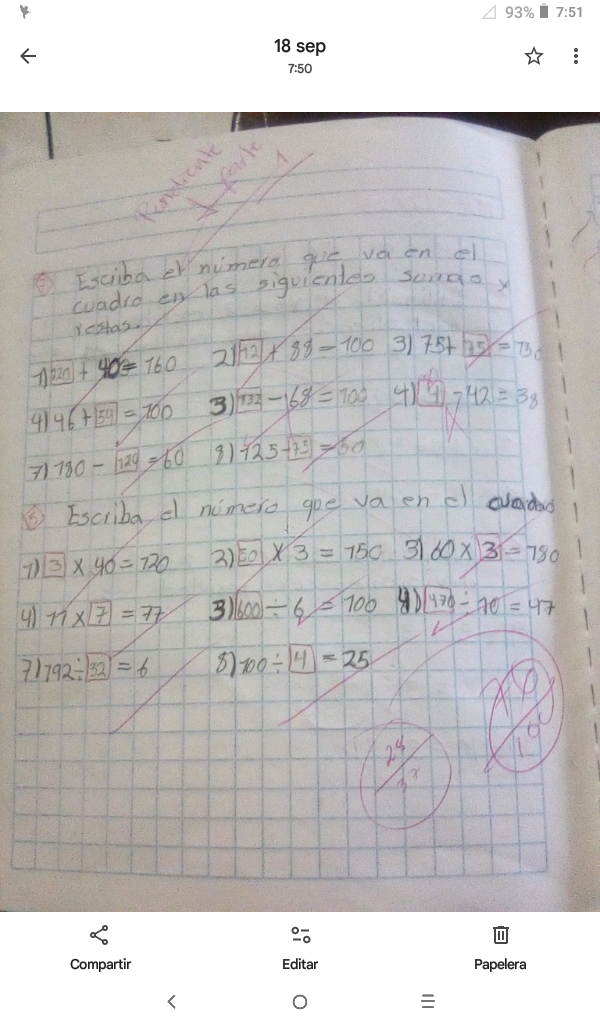 93% 7:51
18 sep
7:50
Remitente
1 parte
Escriba el número que va en el
cuadro en las siguientes sumas y
restas.
1) 120 + 40 = 160 2) 12 + 88 = 100 3) 75 + 75 = 150
4) 46 + 54 = 100 3) 332 - 168 = 100 4) - 42 = 38
7) 180 - 120 = 60 8) 125 - 75 = 50
Escriba el número que va en el cuadrado
1) 3 x 40 = 120 2) 50 x 3 = 150 3) 60 x 3 = 180
4) 11 x 7 = 77 3) 600 ÷ 6 = 100 4) 470 ÷ 10 = 47
7) 192 ÷ 32 = 6 8) 100 ÷ 4 = 25
Compartir Editar Papelera